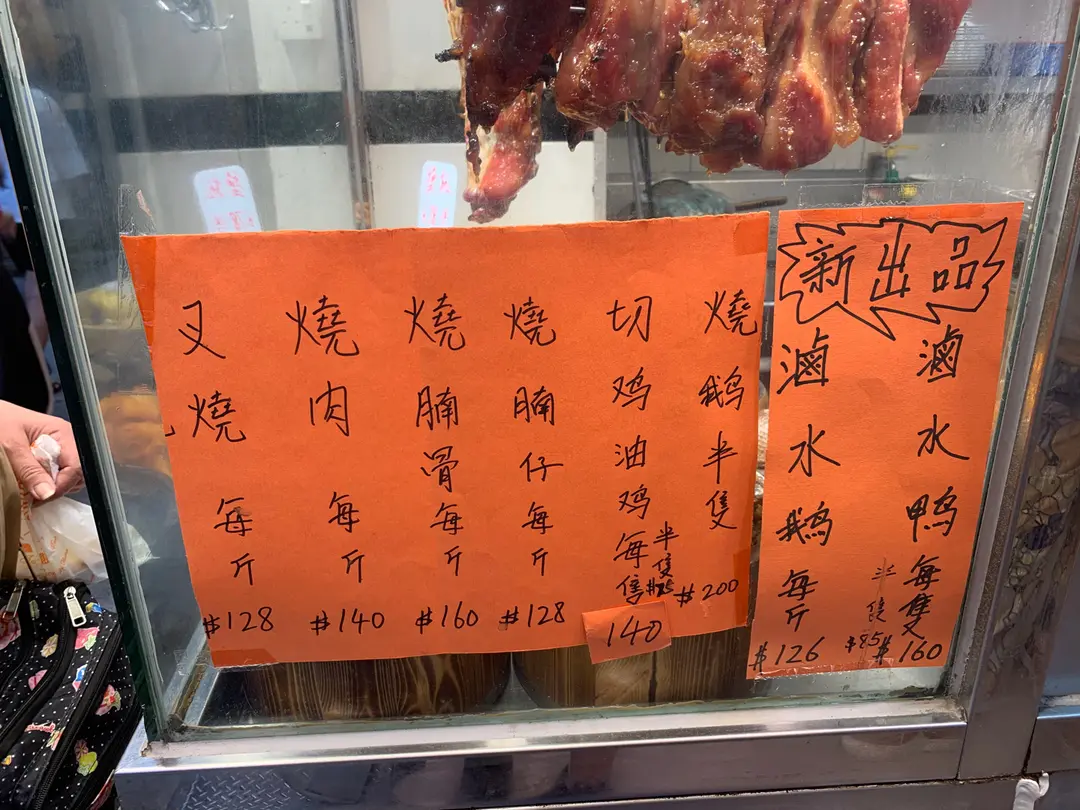 叉燒每斤$128
燒肉每斤$140
燒腩骨每斤$160
燒腩仔每斤$128
切鸡油鸡每隻140
半隻
燒鹅半隻$200
新出品
滷水鹅每斤$126
滷水鸭每隻$160
半隻$85